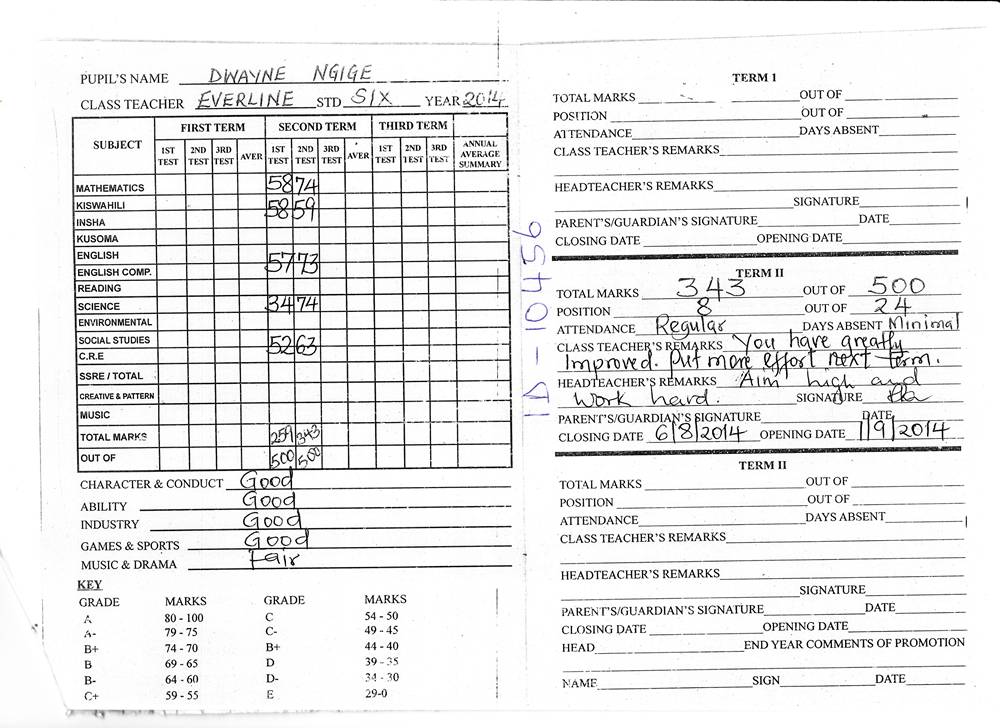 PUPIL'S NAME DWAYNE NGIGE
CLASS TEACHER EVERLINE STD SIX YEAR 2014
SUBJECT FIRST TERM SECOND TERM THIRD TERM ANNUAL AVERAGE SUMMARY
1ST TEST 2ND TEST 3RD TEST AVER 1ST TEST 2ND TEST 3RD TEST AVER 1ST TEST 2ND TEST 3RD TEST
MATHEMATICS 58 74
KISWAHILI 58 59
INSHA
KUSOMA
ENGLISH 57 73
ENGLISH COMP.
READING
SCIENCE 34 74
ENVIRONMENTAL
SOCIAL STUDIES 52 63
C.R.E
SSRE / TOTAL
CREATIVE & PATTERN
MUSIC
TOTAL MARKS 259 343
OUT OF 500 500
CHARACTER & CONDUCT Good
ABILITY Good
INDUSTRY Good
GAMES & SPORTS Good
MUSIC & DRAMA Fair
KEY
GRADE MARKS GRADE MARKS
A 80 - 100 C 54 - 50
A- 79 - 75 C- 49 - 45
B+ 74 - 70 B+ 44 - 40
B 69 - 65 D 39 - 35
B- 64 - 60 D- 34 - 30
C+ 59 - 55 E 29-0
ID - 10456
TERM I
TOTAL MARKS OUT OF
POSITION OUT OF
ATTENDANCE DAYS ABSENT
CLASS TEACHER'S REMARKS
HEADTEACHER'S REMARKS
SIGNATURE
PARENT'S/GUARDIAN'S SIGNATURE DATE
CLOSING DATE OPENING DATE
TERM II
TOTAL MARKS 343 OUT OF 500
POSITION 8 OUT OF 24
ATTENDANCE Regular DAYS ABSENT Minimal
CLASS TEACHER'S REMARKS You have greatly
Improved. Put more effort next term.
HEADTEACHER'S REMARKS Aim high and
work hard. SIGNATURE
PARENT'S/GUARDIAN'S SIGNATURE DATE
CLOSING DATE 6/8/2014 OPENING DATE 1/9/2014
TERM II
TOTAL MARKS OUT OF
POSITION OUT OF
ATTENDANCE DAYS ABSENT
CLASS TEACHER'S REMARKS
HEADTEACHER'S REMARKS
SIGNATURE
PARENT'S/GUARDIAN'S SIGNATURE DATE
CLOSING DATE OPENING DATE
HEAD END YEAR COMMENTS OF PROMOTION
NAME SIGN DATE